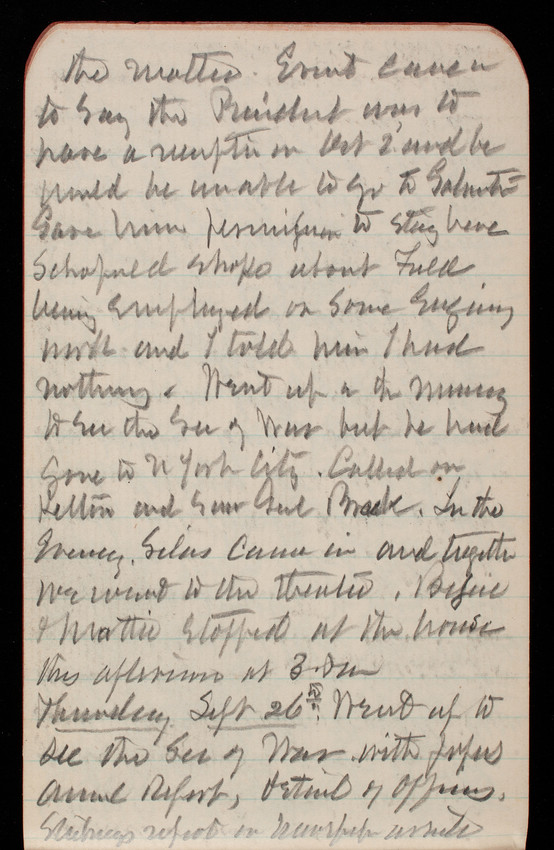 the matter. Ernst came in
to say the President was to
have a reception on Oct 2d and he
would be unable to go to
Gave him permission to stay here
Schofield about Field
being employed on some Engineering
work and I told him I had
nothing. Went up in the morning
to see the Sec of War but he had
gone to N York City. Called on
Kelton and saw Genl In the
Evening Silas came in and together
we went to the theater.
& Mattie stopped at the house
this afternoon at 3
Thursday Sept 26th. Went up to
see the Sec of War with
Report, detail of officers.
report on newspaper